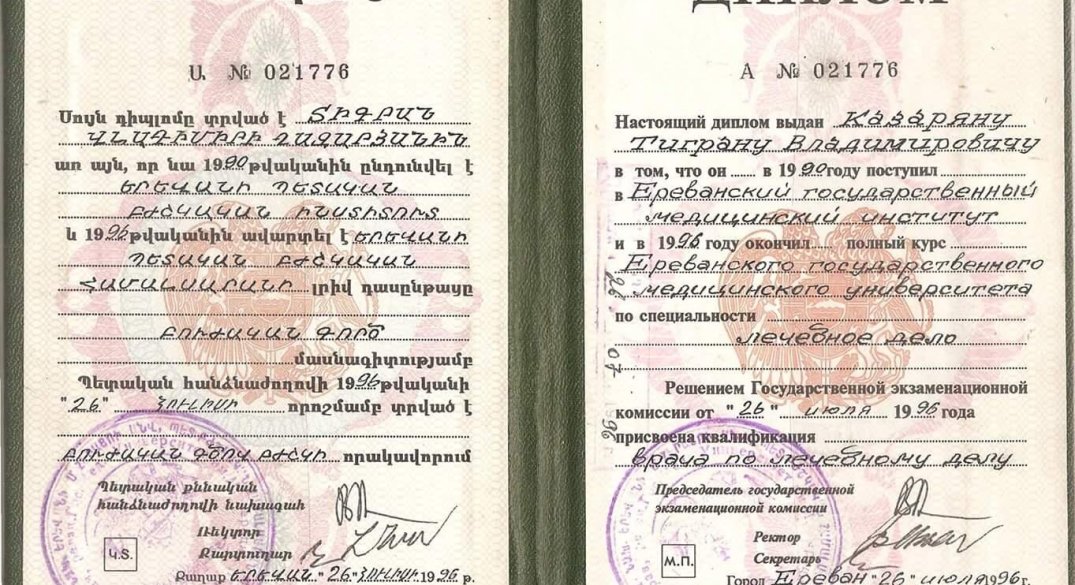 Ա. № 021776
Սույն դիպլոմը տրված է ՏԻԳՐԱՆ
ՎԼԱԴԻՄԻՐԻ ՂԱԶԱՐՅԱՆԻՆ
առ այն, որ նա 1990 թվականին ընդունվել է
ԵՐԵՎԱՆԻ ՊԵՏԱԿԱՆ
ԲԺՇԿԱԿԱՆ ԻՆՍՏԻՏՈՒՏ
և 1996 թվականին ավարտել է ԵՐԵՎԱՆԻ
ՊԵՏԱԿԱՆ ԲԺՇԿԱԿԱՆ
ՀԱՄԱԼՍԱՐԱՆԻ լրիվ դասընթացը
ԲՈՒԺԱԿԱՆ ԳՈՐԾ
մասնագիտությամբ
Պետական հանձնաժողովի 1996 թվականի
"26" ՀՈՒԼԻՍԻ որոշմամբ տրված է
ԲՈՒԺԱԿԱՆ ԳՈՐԾԻ ԲԺՇԿԻ որակավորում
Պետական քննական
հանձնաժողովի նախագահ
Ռեկտոր
Կ.Տ.
Քարտուղար
Քաղաք ԵՐԵՎԱՆ "26" ՀՈՒԼԻՍԻ 1996 թ.
ДИПЛОМ
А № 021776
Настоящий диплом выдан Казаряну
Тиграну Владимировичу
в том, что он в 1990 году поступил
в Ереванский государственный
медицинский институт
и в 1996 году окончил полный курс
Ереванского государственного
медицинского университета
по специальности
лечебное дело
Решением Государственной экзаменационной
комиссии от "26" июля 1996 года
присвоена квалификация
врача по лечебному делу
Председатель государственной
экзаменационной комиссии
Ректор
М.П.
Секретарь
Город Ереван "26" июля 1996 г.